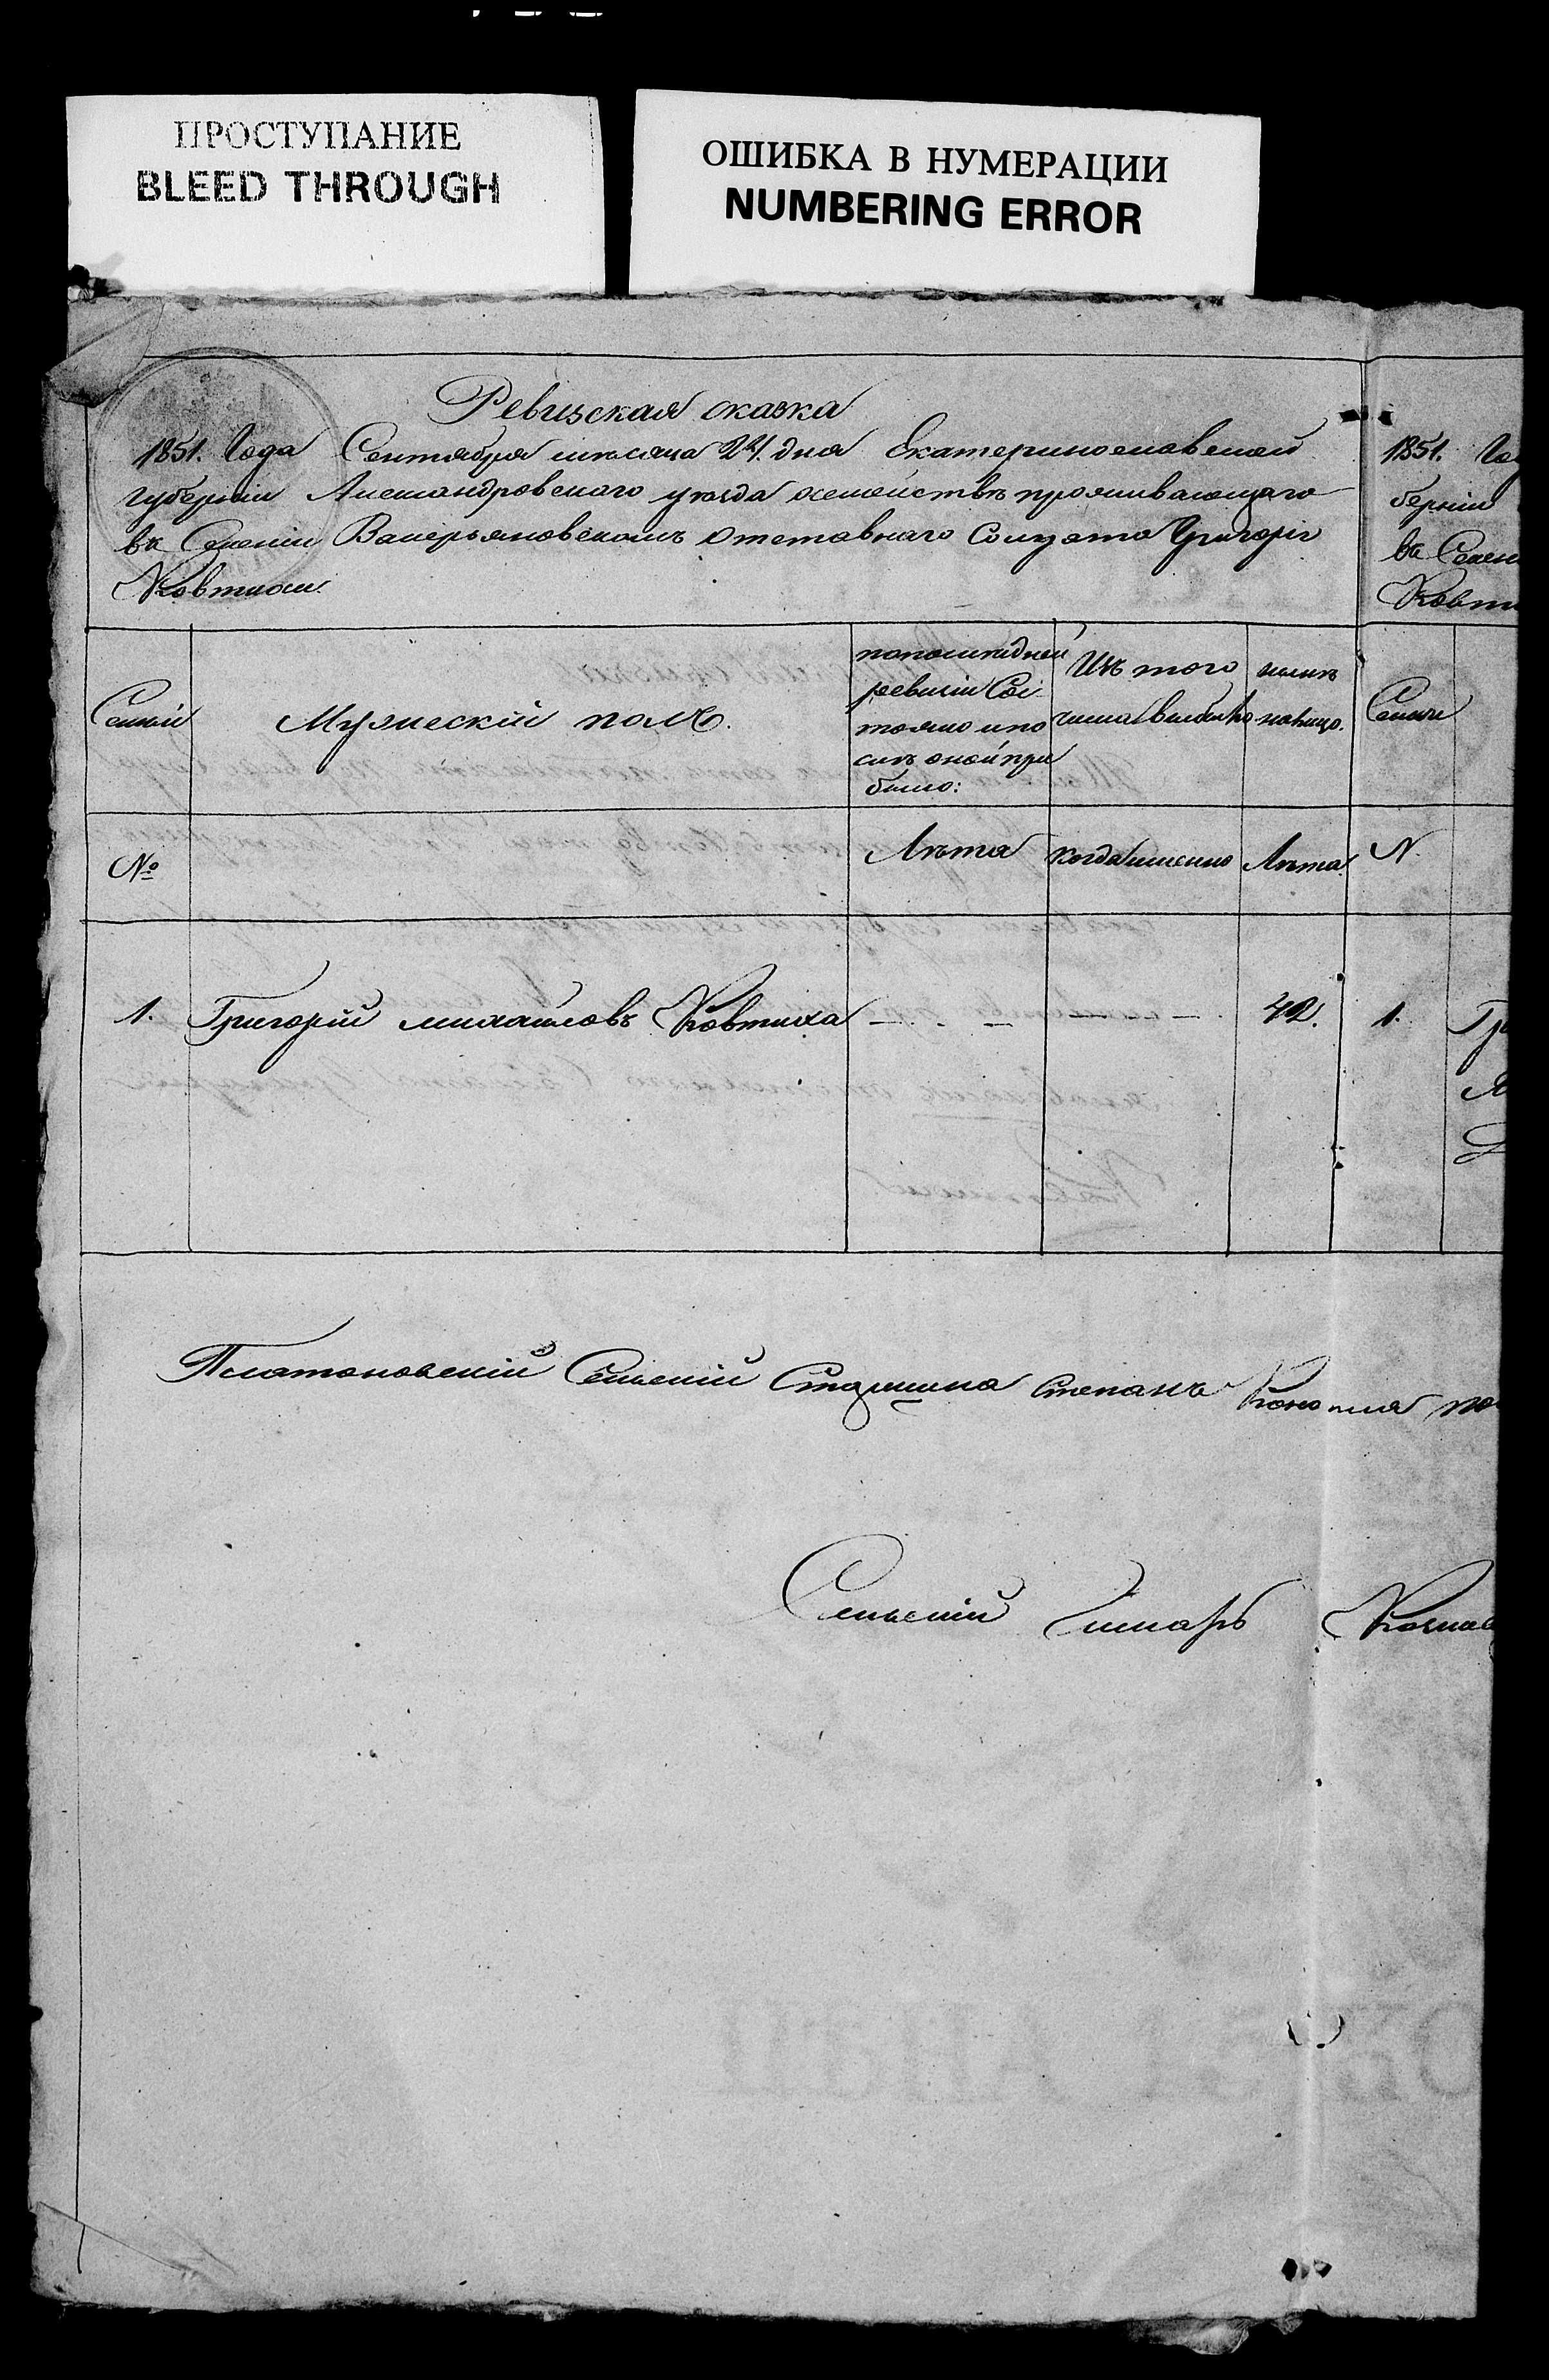 ПРОСТУПАНИЕ
BLEED THROUGH
ОШИБКА В НУМЕРАЦИИ
NUMBERING ERROR
Ревизская сказка
1851. Года Сентября месяца 24. дня Екатеринославской
губернии Александровскаго уезда семействъ проживающаго
въ Селении Валерьяновскомъ отставнаго Солдата Григорія
Ковтихи.
Семьи
Мужескій полъ.
по последней
ревизіи Сос
тояло и по
слъ оной при
было:
Изъ того
числа выбыло
нынъ
налицо.
№
Лъта
когда именно
Лъта
1. Григорій михайловъ Ковтиха — . . — — — . 42.
1851. Го
берніи
въ Селен
Ковти
Семьи
N.
1. Гр
Платоновскій Сельскій Старшина Степанъ Конопля
Сельскій Писарь